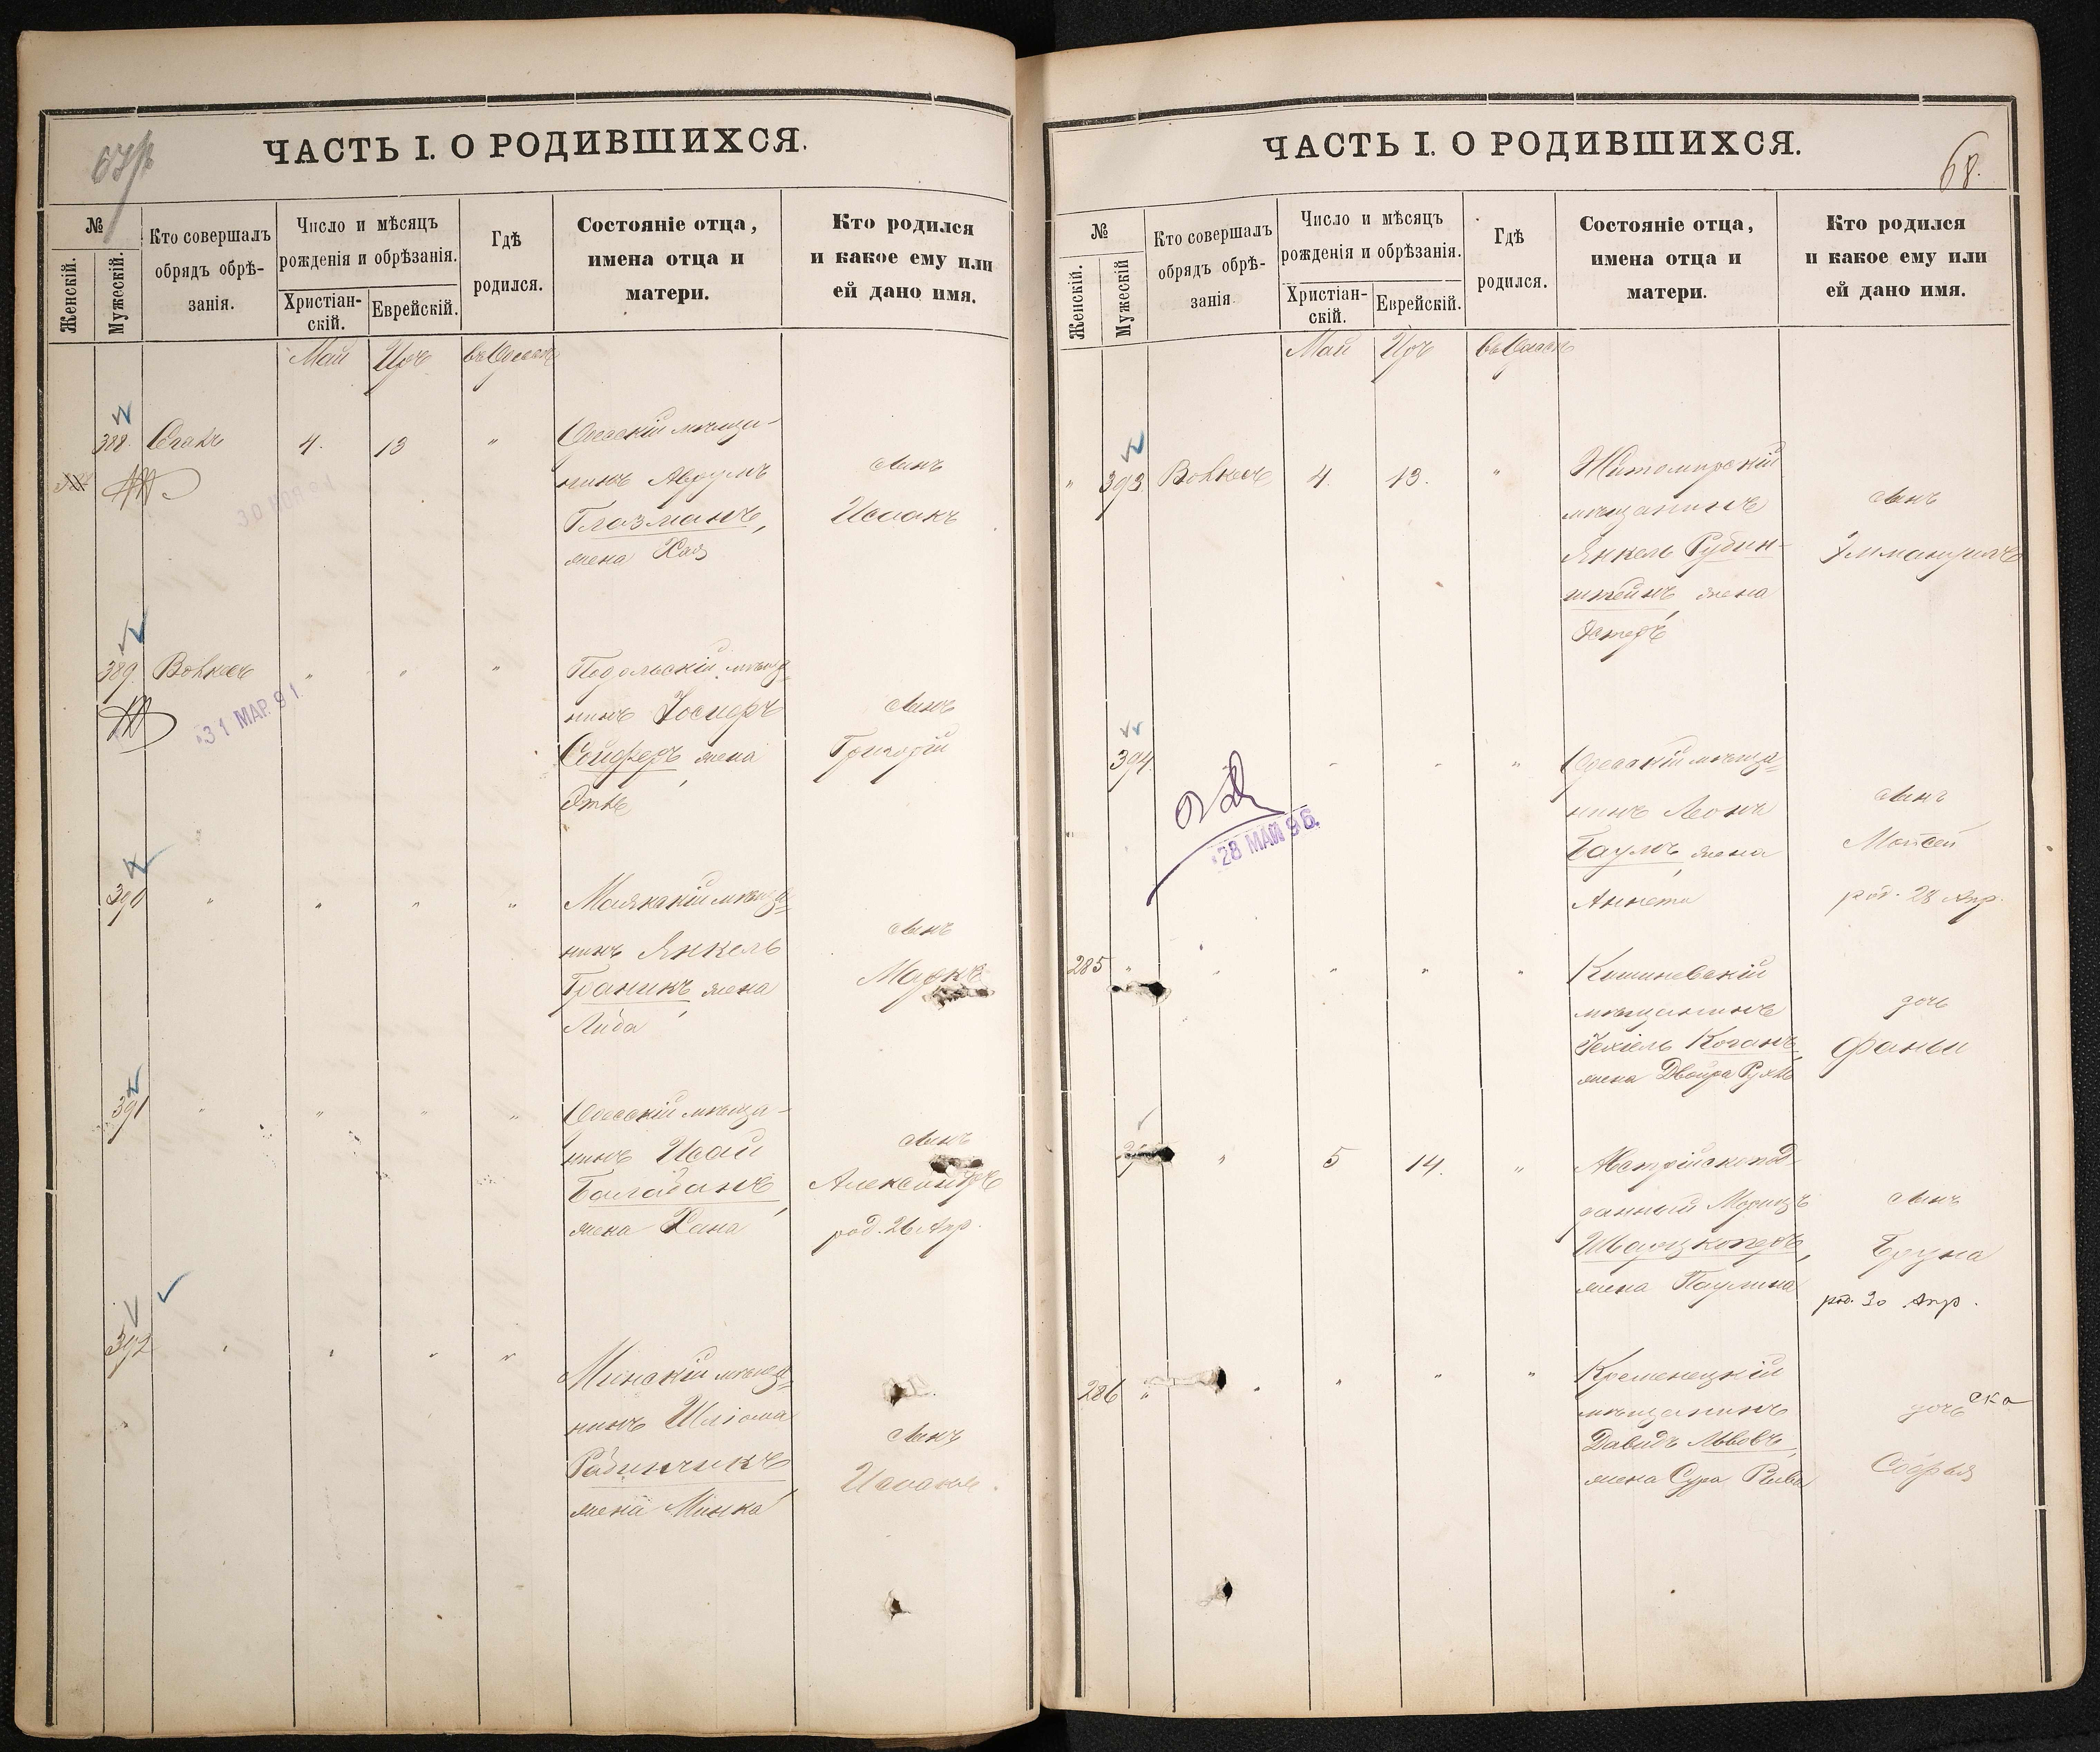 ЧАСТЬ I. О РОДИВШИХСЯ.
№
Женскій.
Мужескій.
Кто совершалъ
обрядъ обрѣ-
занія.
Число и мѣсяцъ
рожденія и обрѣзанія.
Христіан-
скій.
Еврейскій.
Гдѣ
родился.
Состояніе отца,
имена отца и
матери.
Кто родился
и какое ему или
ей дано имя.
Май Іръ въ Одессѣ
388. 4. 13 "
Одесскій мѣща-
нинъ Аврумъ
Глазманъ,
жена Хая
сынъ
Исаакъ
389. " " "
31 МАР. 91.
Подольскій мѣща-
нинъ
Сойферъ, жена
сынъ
Григорій
390 " " " "
Маякскій мѣща-
нинъ Янкель
Граникъ, жена
Либа
сынъ
Маркъ
391 " " " "
Одесскій мѣща-
нинъ Исай
Балабанъ,
жена Хана
сынъ
Александръ
род. 26 Апр.
392 " " " "
Минскій мѣща-
нинъ Шліома
Рабинчикъ,
жена Минка
сынъ
Исаакъ.
ЧАСТЬ I. О РОДИВШИХСЯ.
68.
№
Женскій.
Мужескій
Кто совершалъ
обрядъ обрѣ-
занія.
Число и мѣсяцъ
рожденія и обрѣзанія.
Христіан-
скій.
Еврейскій.
Гдѣ
родился.
Состояніе отца,
имена отца и
матери.
Кто родился
и какое ему или
ей дано имя.
Май Іръ въ Одессѣ
" 393 4. 13. "
Житомирскій
мѣщанинъ
Янкель Рубин-
штейнъ, жена
Эстеръ
сынъ
Эммануилъ
394. " " "
28 МАЙ 96.
Одесскій мѣща-
нинъ Леонъ
Баумъ, жена
Аннета
сынъ
Моисей
род. 28 Апр.
285 " " " " "
Кишиневскій
мѣщанинъ
Іехіель Коганъ,
жена Двойра Рухль
дочь
Фаньи
" 5 14. "
Австрійскопод-
данный Морицъ
Шварцкопфъ,
жена Паулина
сынъ
Бруна
род. 30 Апр.
286 " " " " "
Кременецкій
мѣщанинъ
Давидъ Львовъ,
жена Сура Ривка
дочь
Софья